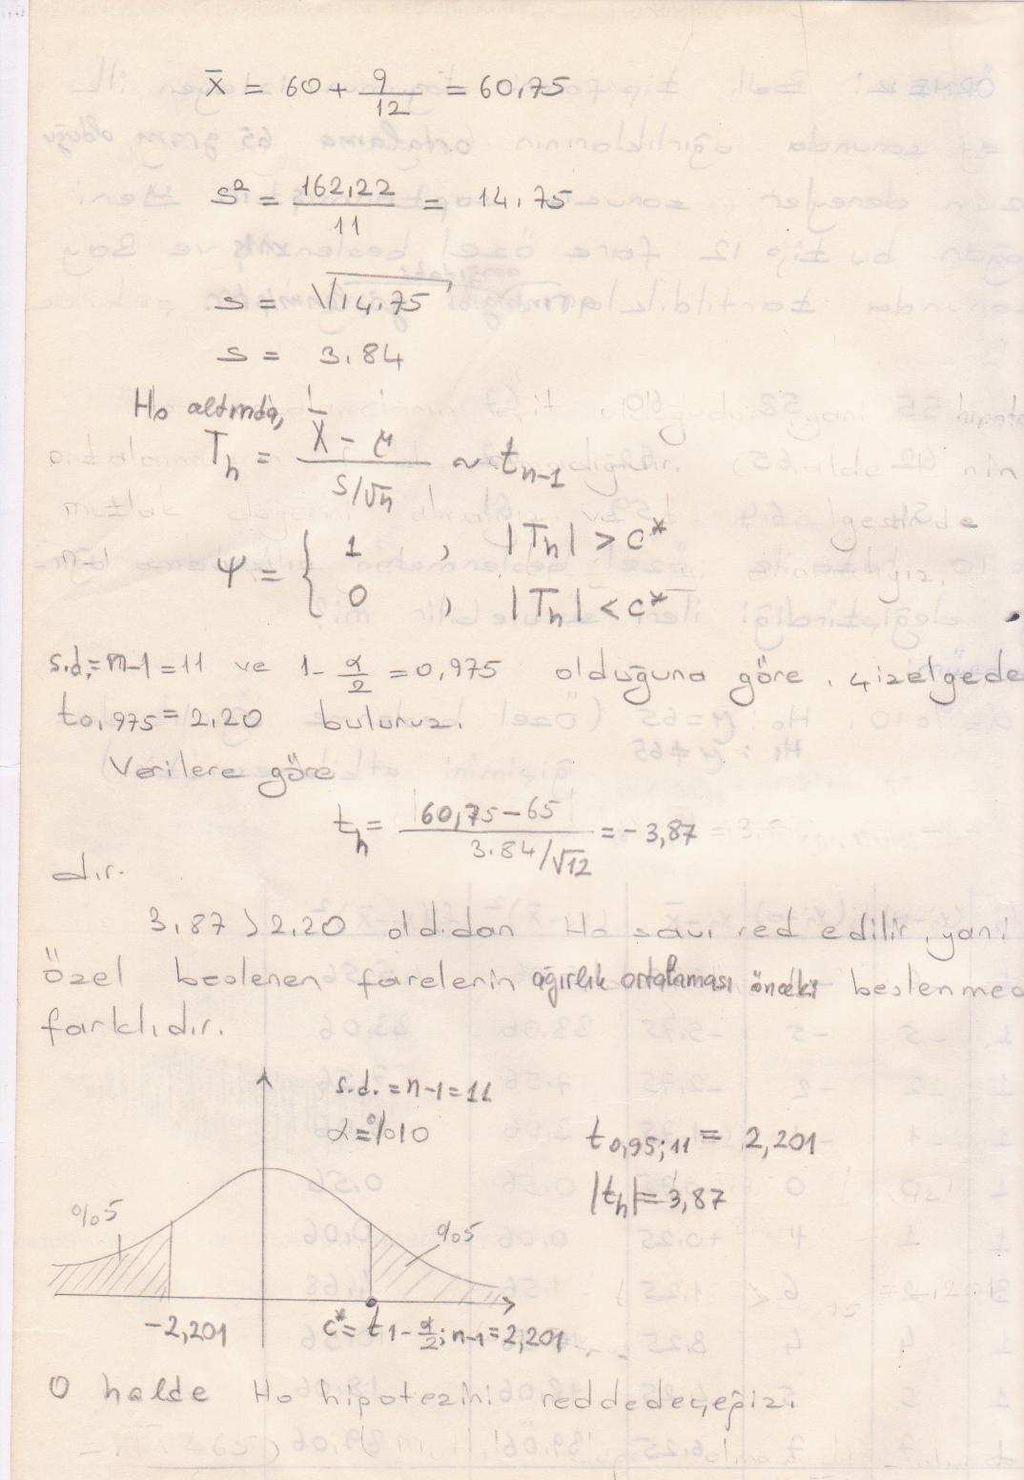 x̄ = 60 + 9/12 = 60,75
s² = 162,22/11 = 14,75
s = √14,75
s = 3.84
Ho altında,
Tₕ = (X̄ - μ)/(s/√n) ~ tₙ₋₁
Ψ = { 1 , |Tₕ| > c*
0 , |Tₕ| < c*
s.d. = n-1 = 11 ve 1 - α/2 = 0,975 olduğuna göre, çizelgede
t0,975 = 2,20 buluruz.
Verilere göre
tₕ = (60,75 - 65)/(3.84/√12) = -3,87
dır.
3,87 > 2,20 old.dan Ho savı red edilir, yani
özel beslenen farelerin ağırlık ortalaması önceki beslenmed
farklıdır.
s.d. = n-1 = 11
α = %10
t0,95;11 = 2,201
|tₕ| = 3,87
%5 %5
-2,201 c* = t1-α/2; n-1 = 2,201
O halde Ho hipotezini reddedeceğiz.